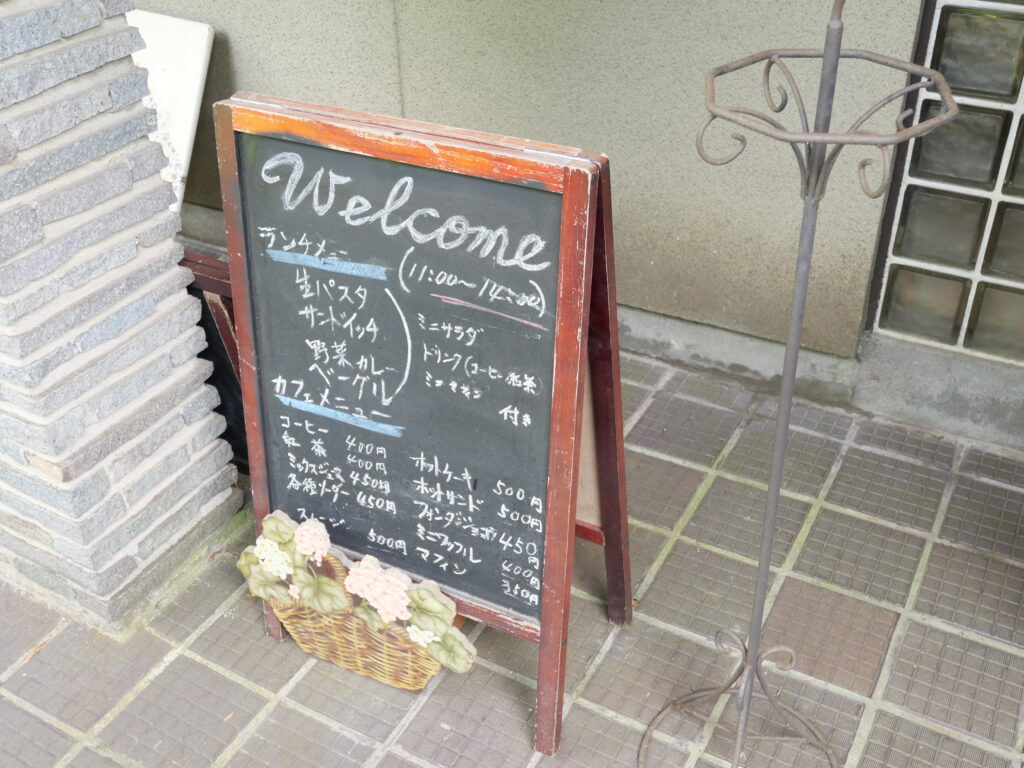 Welcome
ランチメニュー
(11:00〜14:00)
生パスタ
サンドイッチ
野菜カレー
ベーグル
ミニサラダ
ドリンク(コーヒー紅茶)
付き
カフェメニュー
コーヒー 400円
紅茶 400円
ミックスジュース 450円
各種ソーダー 450円
500円
ホットケーキ 500円
ホットサンド 500円
フォンダンショコラ 450円
ミニワッフル 400円
マフィン 350円